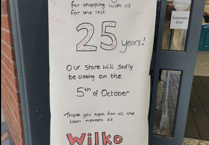 For shopping with us
For the last
25 years!
Our Store will Sadly
be closing on the
5th of October
Thank you again from all the
team members at
Wilko
Automatic
Door